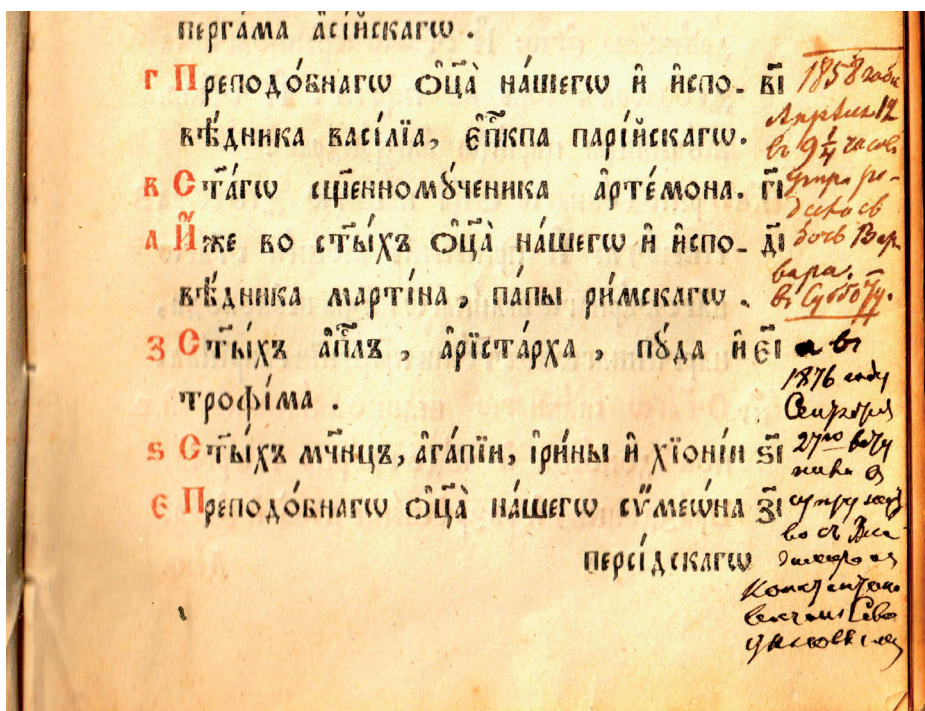 перга́ма а҆сі́йскагѡ .
г Преподо́бнагѡ ѻ҆ц҃а̀ на́шегѡ и҆ и҆спо- в҃і
вѣ́дника васі́лїа, є҆пⷭ҇кпа парі́йскагѡ.
в Ст҃а́гѡ сщ҃енномꙋ́ченика а҆рте́мона. г҃і
а И҆́же во ст҃ы́хъ ѻ҆ц҃а̀ на́шегѡ и҆ и҆спо- д҃і
вѣ́дника марті́на , па́пы ри́мскагѡ .
з Ст҃ы́хъ а҆пⷭ҇лъ , а҆рїста́рха , пꙋ́да и҆ є҃і
трофі́ма .
ѕ Ст҃ы́хъ мч҃нцъ, а҆га́пїи, і҆ри́ны и҆ хїо́нїи ѕ҃і
є Преподо́бнагѡ ѻ҆ц҃а̀ на́шегѡ сѷмеѡ́на з҃і
персі́дскагѡ
1858 года
Апрѣля 12
въ 9 1/4 часовъ
утра ро-
дилась
дочь Вар
вара.
въ Субботу.
а въ
1876 году
Сентября
27го
во съ Вла